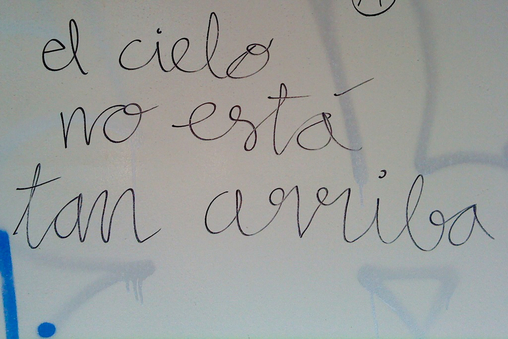 el cielo
no está
tan arriba